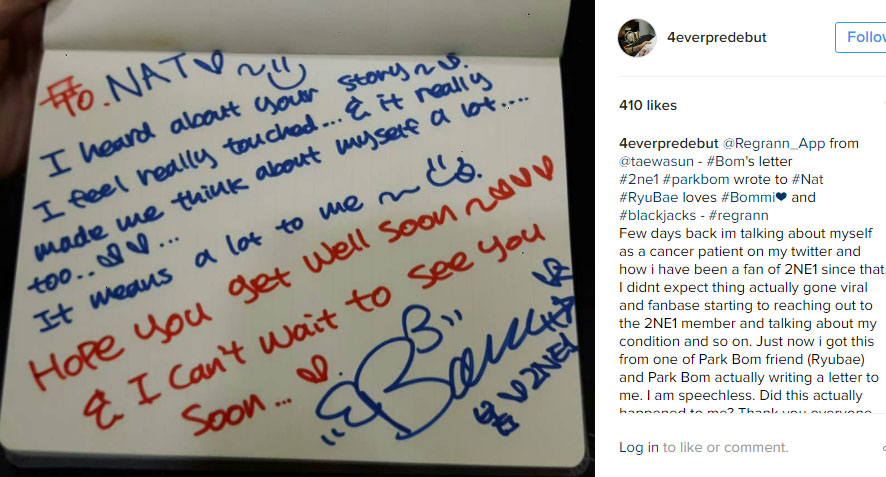 To. NAT♡ ~
I heard about your story~
I feel really touched...& it really
made me think about myself a lot....
too..♡♡...
It means a lot to me ~
Hope you get well soon ~♡♡♡
& I can't wait to see you
soon...♡.
Bom
봄 ♡ 2NE1
4everpredebut
Follow
410 likes
4everpredebut @Regrann_App from
@taewasun - #Bom's letter
#2ne1 #parkbom wrote to #Nat
#RyuBae loves #Bommi❤ and
#blackjacks - #regrann
Few days back im talking about myself
as a cancer patient on my twitter and
how i have been a fan of 2NE1 since that.
I didnt expect thing actually gone viral
and fanbase starting to reaching out to
the 2NE1 member and talking about my
condition and so on. Just now i got this
from one of Park Bom friend (Ryubae)
and Park Bom actually writing a letter to
me. I am speechless. Did this actually
happened to me? Thank you everyone
Log in to like or comment.